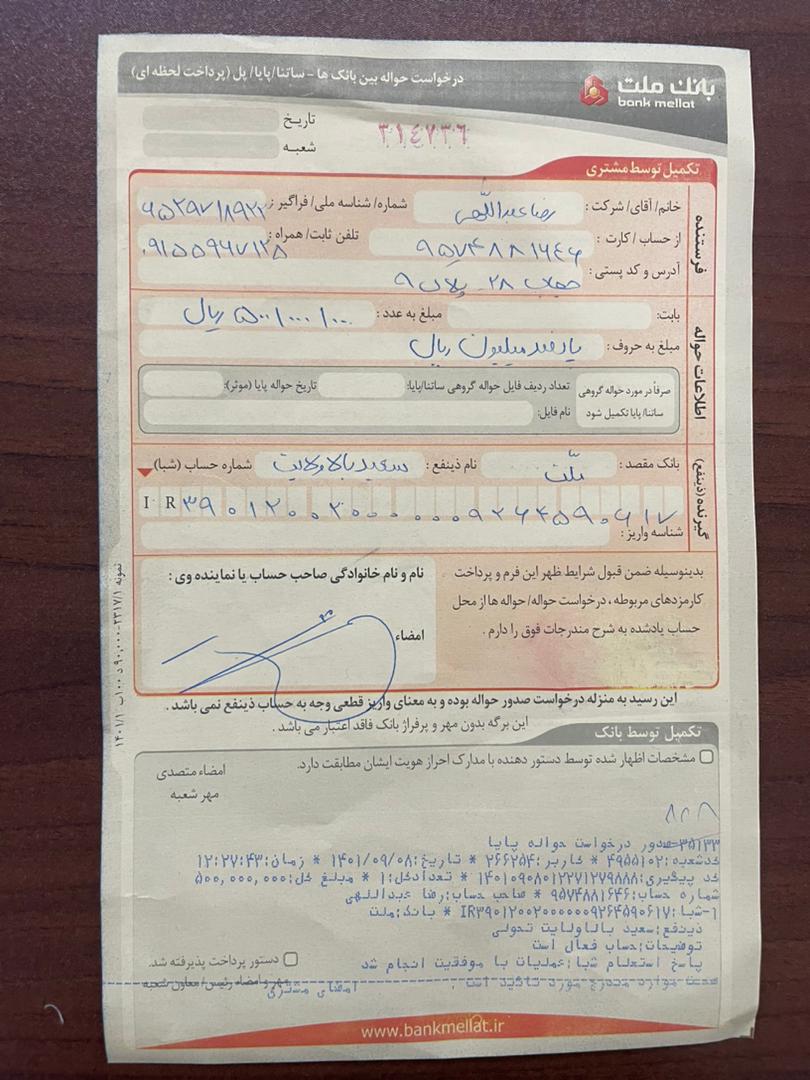 درخواست حواله بین بانک ها - ساتنا/پایا/ پل (پرداخت لحظه ای)
بانک ملت
bank mellat
تاریخ
شعبه
۳۱۴۷۳۶
تکمیل توسط مشتری
فرستنده
خانم/ آقای/ شرکت: رضا عبداللهی شماره/ شناسه ملی/ فراگیر:
از حساب/ کارت: ۹۵۷۴۸۸۱۶۴۶ تلفن ثابت/ همراه: ۰۹۱۵۵۹۶۷۱۲۸
آدرس و کد پستی: ۲۸ - پلاک ۹
اطلاعات حواله
بابت: مبلغ به عدد: ۵۰۰/۰۰۰/۰۰۰ ریال
مبلغ به حروف: پانصد میلیون ریال
صرفاً در مورد حواله گروهی ساتنا/ پایا تکمیل شود
تعداد ردیف فایل حواله گروهی ساتنا/پایا: تاریخ حواله پایا (موثر):
نام فایل:
گیرنده (ذینفع)
بانک مقصد: ملّت نام ذینفع: سعید بالاولایت شماره حساب (شبا)
I R ۳۹۰۱۲۰۰۲۰۰۰۰۰۰۹۲۶۴۵۹۰۶۱۷
شناسه واریز:
بدینوسیله ضمن قبول شرایط ظهر این فرم و پرداخت
کارمزدهای مربوطه، درخواست حواله/ حواله ها از محل
حساب یادشده به شرح مندرجات فوق را دارم.
نام و نام خانوادگی صاحب حساب یا نماینده وی:
امضاء
این رسید به منزله درخواست صدور حواله بوده و به معنای واریز قطعی وجه به حساب ذینفع نمی باشد.
این برگه بدون مهر و پرفراژ بانک فاقد اعتبار می باشد.
تکمیل توسط بانک
مشخصات اظهار شده توسط دستور دهنده با مدارک احراز هویت ایشان مطابقت دارد.
امضاء متصدی
مهر شعبه
۳۵۱۳۳-صدور درخواست حواله پایا
کدشعبه:۴۹۵۵۱۰۲ * کاربر:۲۶۶۲۵۴ * تاریخ:۱۴۰۱/۰۹/۰۸ * زمان:۱۲:۲۷:۴۳
کد پیگیری:۱۴۰۱۰۹۰۸۰۱۲۲۷۱۲۷۹۸۸۸ * تعدادکل:۱ * مبلغ کل:۵۰۰,۰۰۰,۰۰۰
شماره حساب:۹۵۷۴۸۸۱۶۴۶ * صاحب حساب:رضا عبداللهی
۱-شبا:IR۳۹۰۱۲۰۰۲۰۰۰۰۰۰۹۲۶۴۵۹۰۶۱۷ * بانک:ملت
ذینفع:سعید بالاولایت تحولی
توضیحات:حساب فعال است
پاسخ استعلام شبا:عملیات با موفقیت انجام شد
صحت موارد مندرج مورد تائید است. امضای مشتری
دستور پرداخت پذیرفته شد.
مهر و امضاء رئیس/ معاون شعبه
www.bankmellat.ir